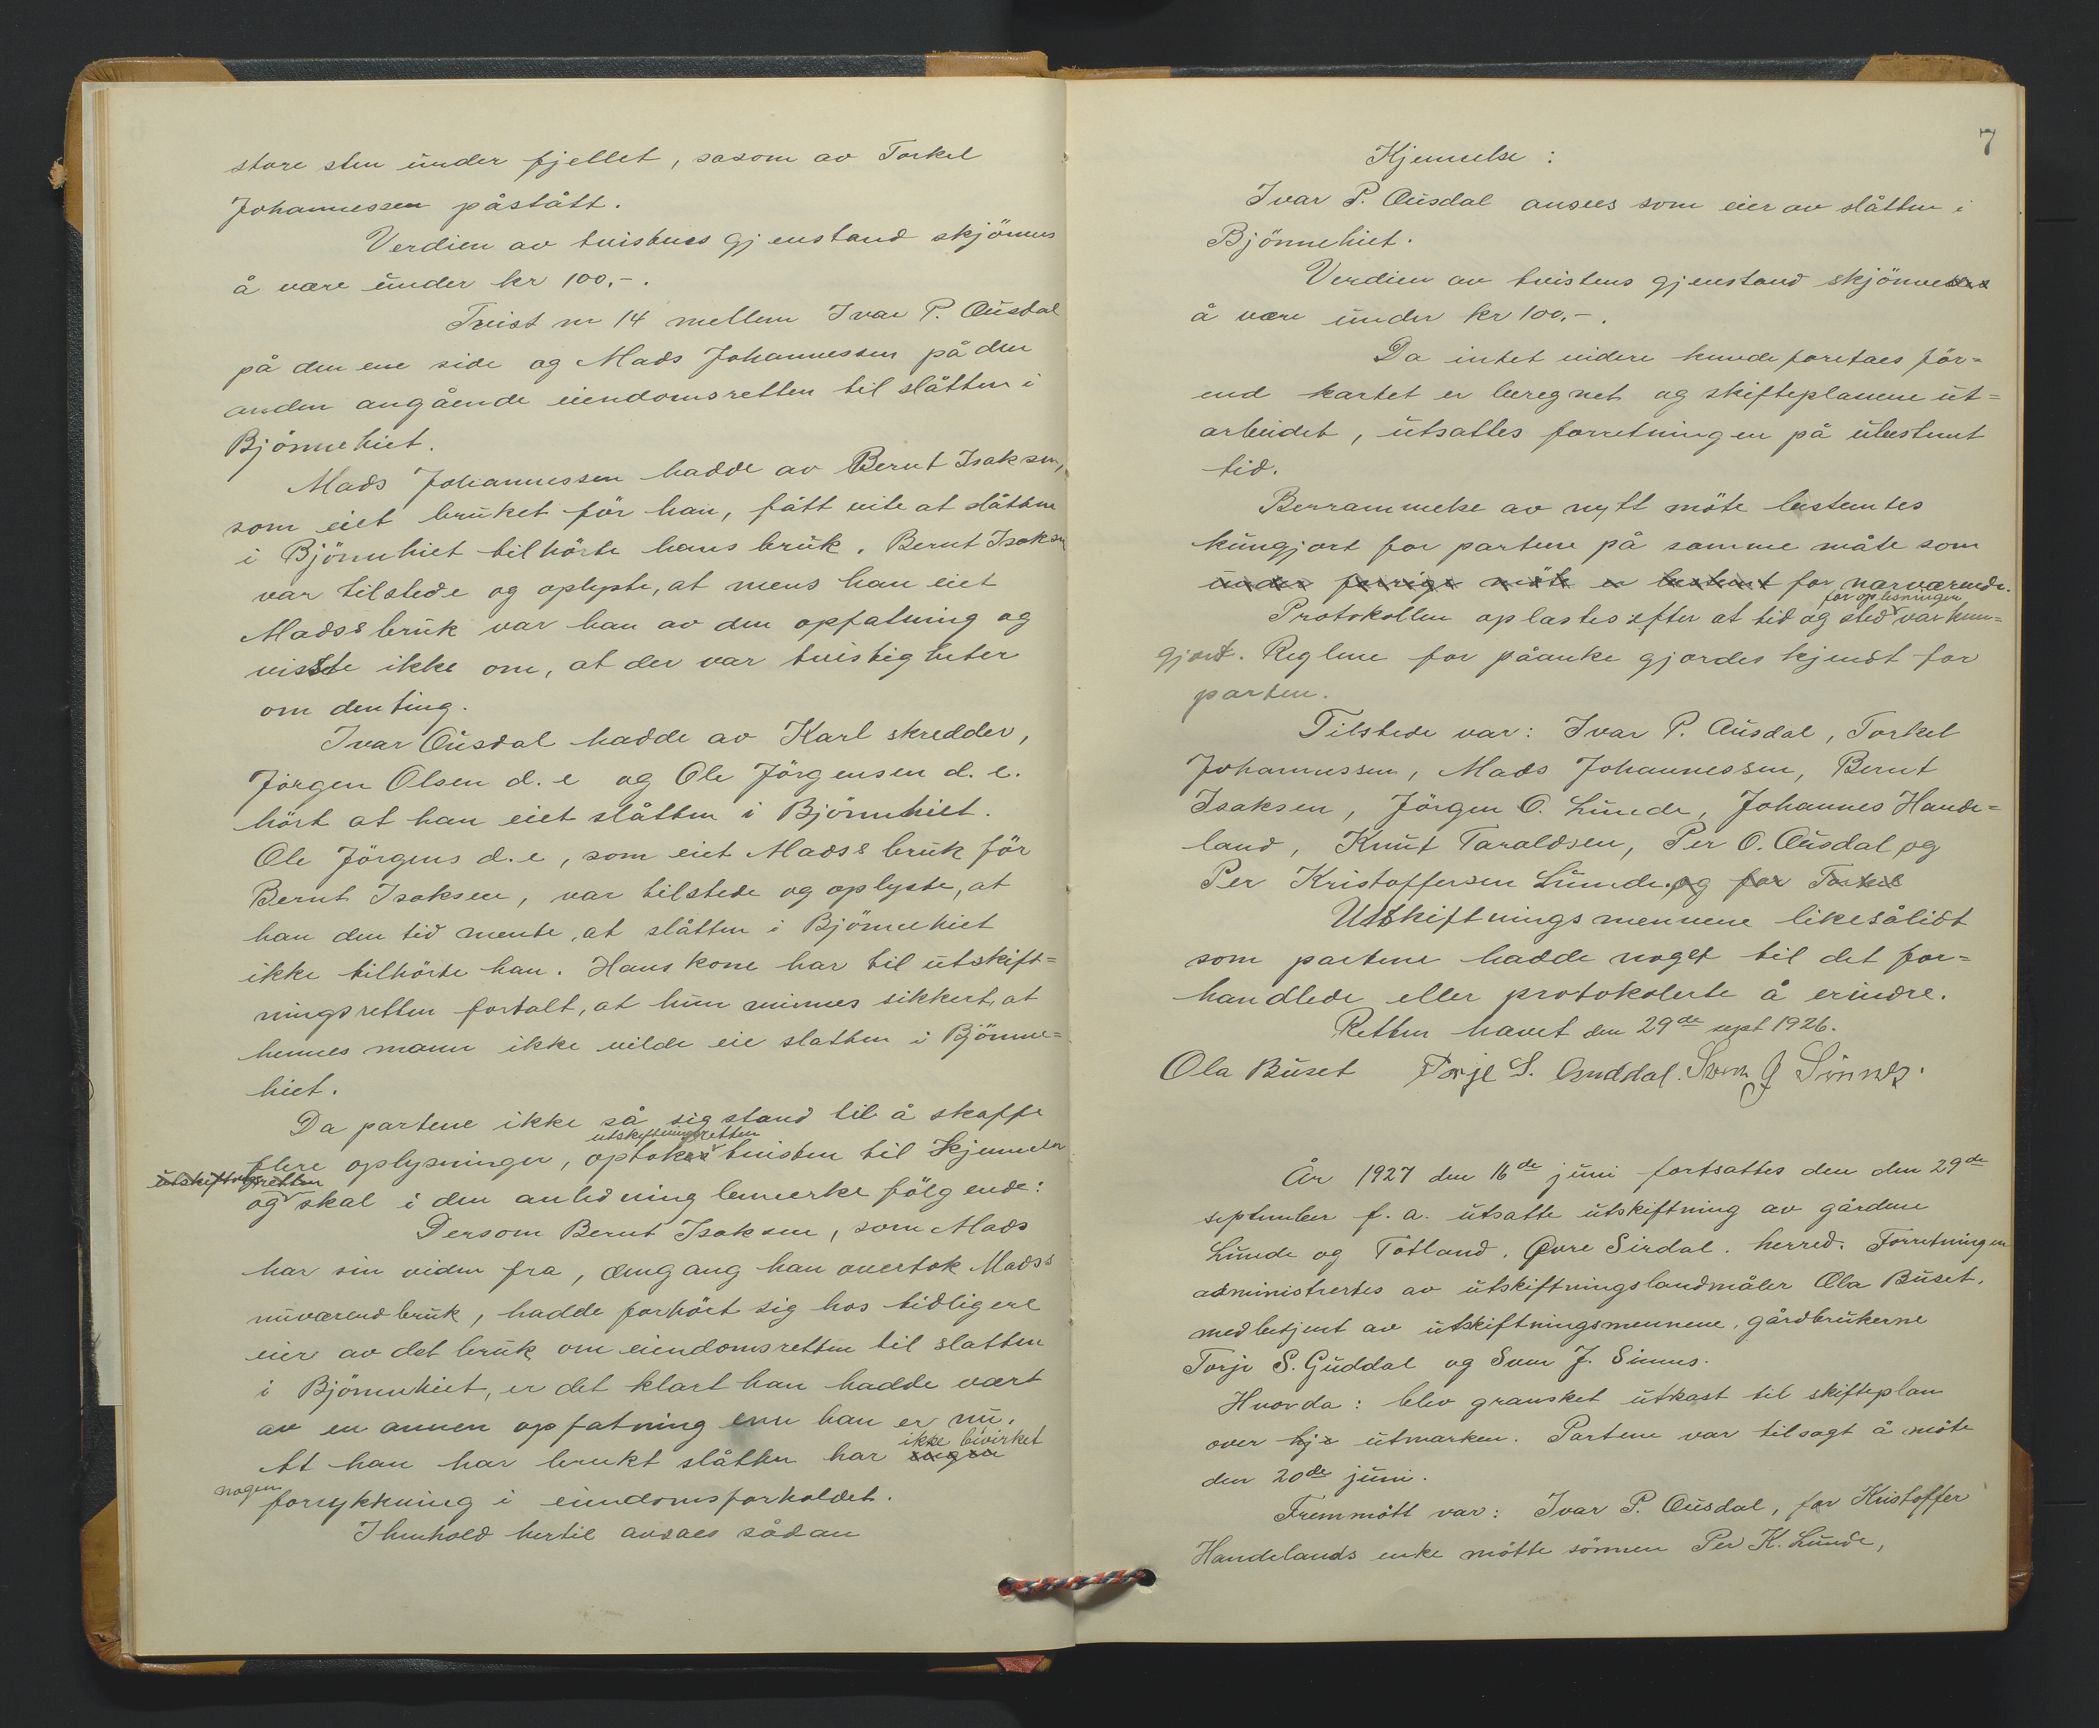 store sten under fjellet, såsom av Torkel
Johannessen påstått.
Verdien av tvistens gjenstand skjönnes
å være under kr 100,-.
Tvist nr 14 mellem Ivar P. Ousdal
på den ene side og Mads Johannessen på den
anden angående eiendomsretten til slåtten i
Björnnehiet.
Mads Johannessen hadde av Bernt Isaksen,
som eiet bruket för han, fått vite at slåttene
i Björnnhiet tilhörte hans bruk. Bernt Isaksen
var tilstede og oplyste, at mens han eiet
Madss bruk var han av den opfatning og
visste ikke om, at der var tvistigheter
om den ting.
Ivar Ousdal hadde av Karl skredder,
Jörgen Olsen d. e og Ole Jörgensen d. e.
hört at han eiet slåtten i Björnnhiet.
Ole Jörgens d. e, som eiet Madss bruk för
Bernt Isaksen, var tilstede og oplyste, at
han den tid mente, at slåtten i Björnnehiet
ikke tilhörte han. Hans kone har til utskift=
ningsretten fortalt, at hun minnes sikkert, at
hennes mann ikke vilde eie slatten i Björnne=
hiet.
Da partene ikke så sig stand til å skaffe
utskiftningsretten
flere oplysninger, optokes tvisten til kjennelse
utskiftngsretten
og skal i den anledning bemerke fölgende:
Dersom Bernt Isaksen, som Mads
har sin viden fra, dengang han overtok Madss
nuværend bruk, hadde forhört sig hos tidligere
eier av det bruk om eiendomsretten til slatten
i Björnnehiet, er det klart han hadde vært
av en annen opfatning enn han er nu.
ikke bivirket
At han har brukt slåtten har ingen
nogen
forrykkning i eiendomsforholdet.
I henhold hertil avsaes sådan
7
Kjennelse:
Ivar P. Ousdal ansees som eier av slåtten i
Björnnehiet.
Verdien av tvistens gjenstand skjönnes
å være under kr 100,-.
Da intet videre kunde foretaes för=
end kartet er beregnet og skifteplanene ut=
arbeidet, utsattes forretningen på ubestemt
tid.
Berrammelse av nytt möte bestemtes
kungjort for partene på samme måte som
under forrige möte er bestemt for nærværende.
for oplesningen
Protokollen oplæstes efter at tid og sted var kun=
gjort. Reglene for påanke gjordes kjendt for
parten.
Tilstede var: Ivar P. Ousdal, Torkel
Johannessen, Mads Johannessen, Bernt
Isaksen, Jörgen O. Lunde, Johannes Hande=
land, Knut Taraldsen, Per O. Ousdal og
Per Kristoffersen Lunde. og for Torkel
Utskiftningsmennene likesålidt
som partene hadde noget til det for=
handlede eller protokolerte å erindre.
Retten hævet den 29de sept 1926.
Ola Buset Torje S. Guddal. Sven J Sinnes.
År 1927 den 16de juni fortsattes den den 29de
september f. a. utsatte utskiftning av gårdene
Lunde og Tötland, Övre Sirdal herred. Forretningen
administrertes av utskiftningslandmåler Ola Buset,
medbetjent av utskiftningsmennene, gårdbrukerne
Torje S. Guddal og Sven J. Sinnes.
Hvorda: blev gransket utkast til skifteplan
over hje utmarken. Partene var tilsagt å möte
den 20de juni.
Fremmött var: Ivar P. Ousdal, for Kristoffer
Handelands enke mötte sönnen Per K. Lunde,